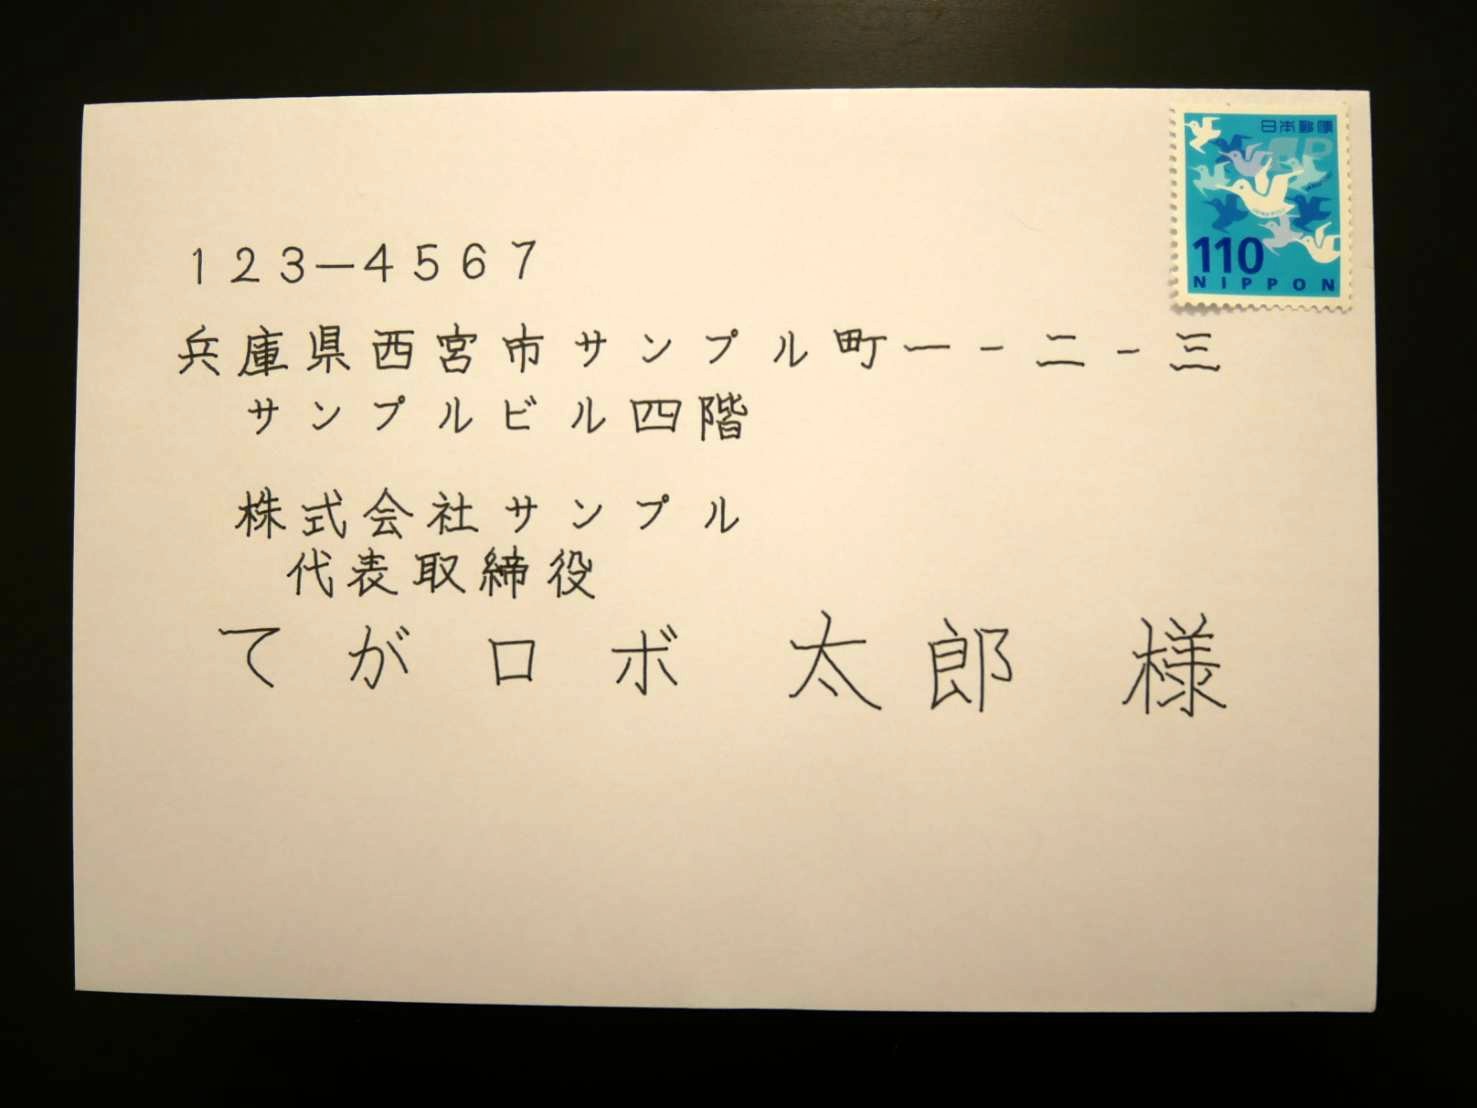 日本郵便
110
NIPPON
123-4567
兵庫県西宮市サンプル町一-二-三
サンプルビル四階
株式会社サンプル
代表取締役
てがロボ 太郎 様